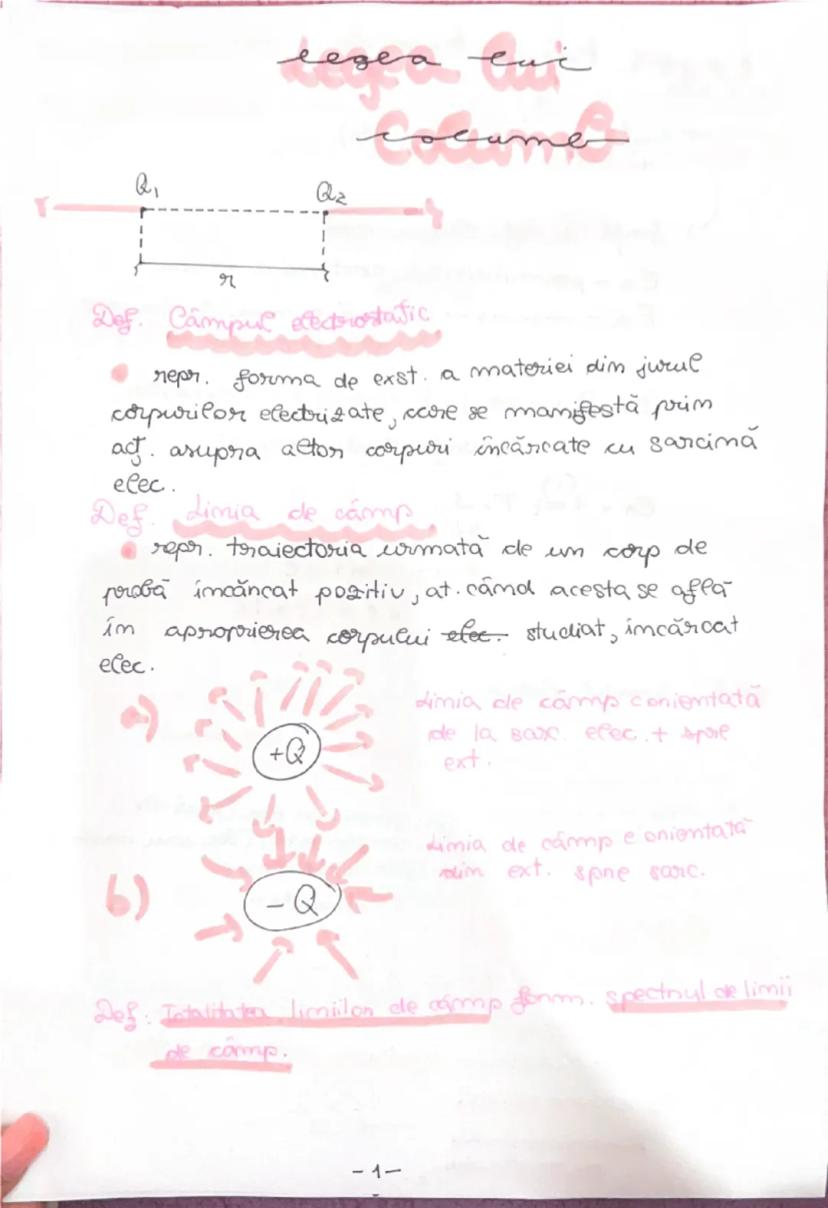 Legea lui
Columb
Q1 Q2
r
Def. Câmpul electrostatic
repr. forma de exst. a materiei din jurul
corpurilor electrizate, care se manifestă prin
acț. asupra altor corpuri încărcate cu sarcină
elec.
Def. Linia de câmp
repr. traiectoria urmată de un corp de
probă încărcat pozitiv, at. când acesta se află
în apropierea corpului elec. studiat, încărcat
elec.
a)
+Q
Linia de câmp e orientată
de la sarc. elec. + spre
ext.
b)
- Q
Linia de câmp e orientată
din ext. spre sarc.
Def. Totalitatea liniilor de câmp form. spectrul de linii
de câmp.
-1-